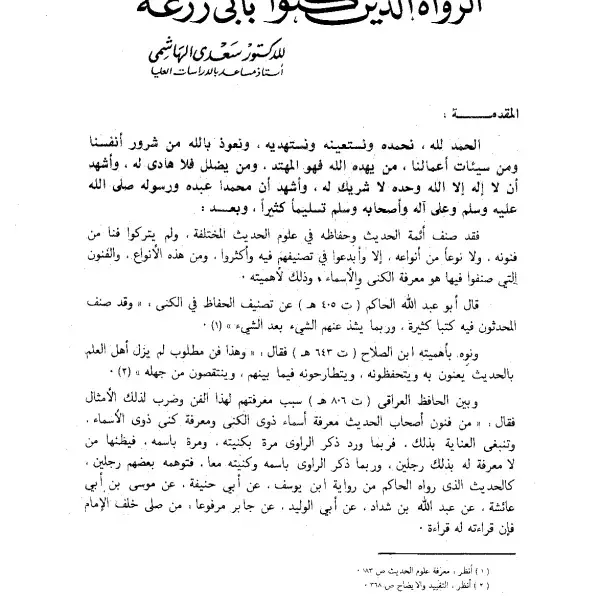 الرواة الذين كنوا بأبي زرعة
للدكتور سعدى الهاشمي
أستاذ مساعد بالدراسات العليا
المقدمـــــة :
الحمد لله ، نحمده ونستعينه ونستهديه ، ونعوذ بالله من شرور أنفسنا
ومن سيئات أعمالنا ، من يهده الله فهو المهتد ، ومن يضلل فلا هادى له ، وأشهد
أن لا إله إلا الله وحده لا شريك له ، وأشهد أن محمدا عبده ورسوله صلى الله
عليه وسلم وعلى آله وأصحابه وسلم تسليماً كثيراً ، وبعـد :
فقد صنف أئمة الحديث وحفاظه في علوم الحديث المختلفة ، ولم يتركوا فنا من
فنونه ، ولا نوعاً من أنواعه ، إلا وأبدعوا في تصنيفهم فيه وأكثروا ، ومن هذه الأنواع ، والفنون
التي صنفوا فيها هو معرفة الكنى والأسماء ، وذلك لأهميته .
قال أبو عبد الله الحاكم ( ت ٤٠٥ هـ ) عن تصنيف الحفاظ في الكنى : « وقد صنف
المحدثون فيه كتبا كثيرة ، وربما يشذ عنهم الشيء بعد الشيء » (١) .
ونوه بأهميته ابن الصلاح ( ت ٦٤٣ هـ ) فقال : « وهذا فن مطلوب لم يزل أهل العلم
بالحديث يعنون به ويتحفظونه ، ويتطارحونه فيما بينهم ، وينتقصون من جهله » (٢) .
وبين الحافظ العراقي ( ت ٨٠٦ هـ ) سبب معرفتهم لهذا الفن وضرب لذلك الأمثال
فقال : « من فنون أصحاب الحديث معرفة أسماء ذوى الكنى ومعرفة كنى ذوى الأسماء .
وتنبغى العناية بذلك ، فربما ورد ذكر الراوى مرة بكنيته ، ومرة باسمه ، فيظنها من
لا معرفة له بذلك رجلين ، وربما ذكر الراوى باسمه وكنيته معا ، فتوهمه بعضهم رجلين ،
كالحديث الذى رواه الحاكم من رواية ابن يوسف ، عن أبي حنيفة ، عن موسى بن أبي
عائشة ، عن عبد الله بن شداد ، عن أبي الوليد ، عن جابر مرفوعا : من صلى خلف الإمام
فإن قراءته له قراءة .
( ١ ) أنظر ، معرفة علوم الحديث ص ١٨٣ .
( ٢ ) أنظر ، التقييد والايضاح ص ٣٦٨ .